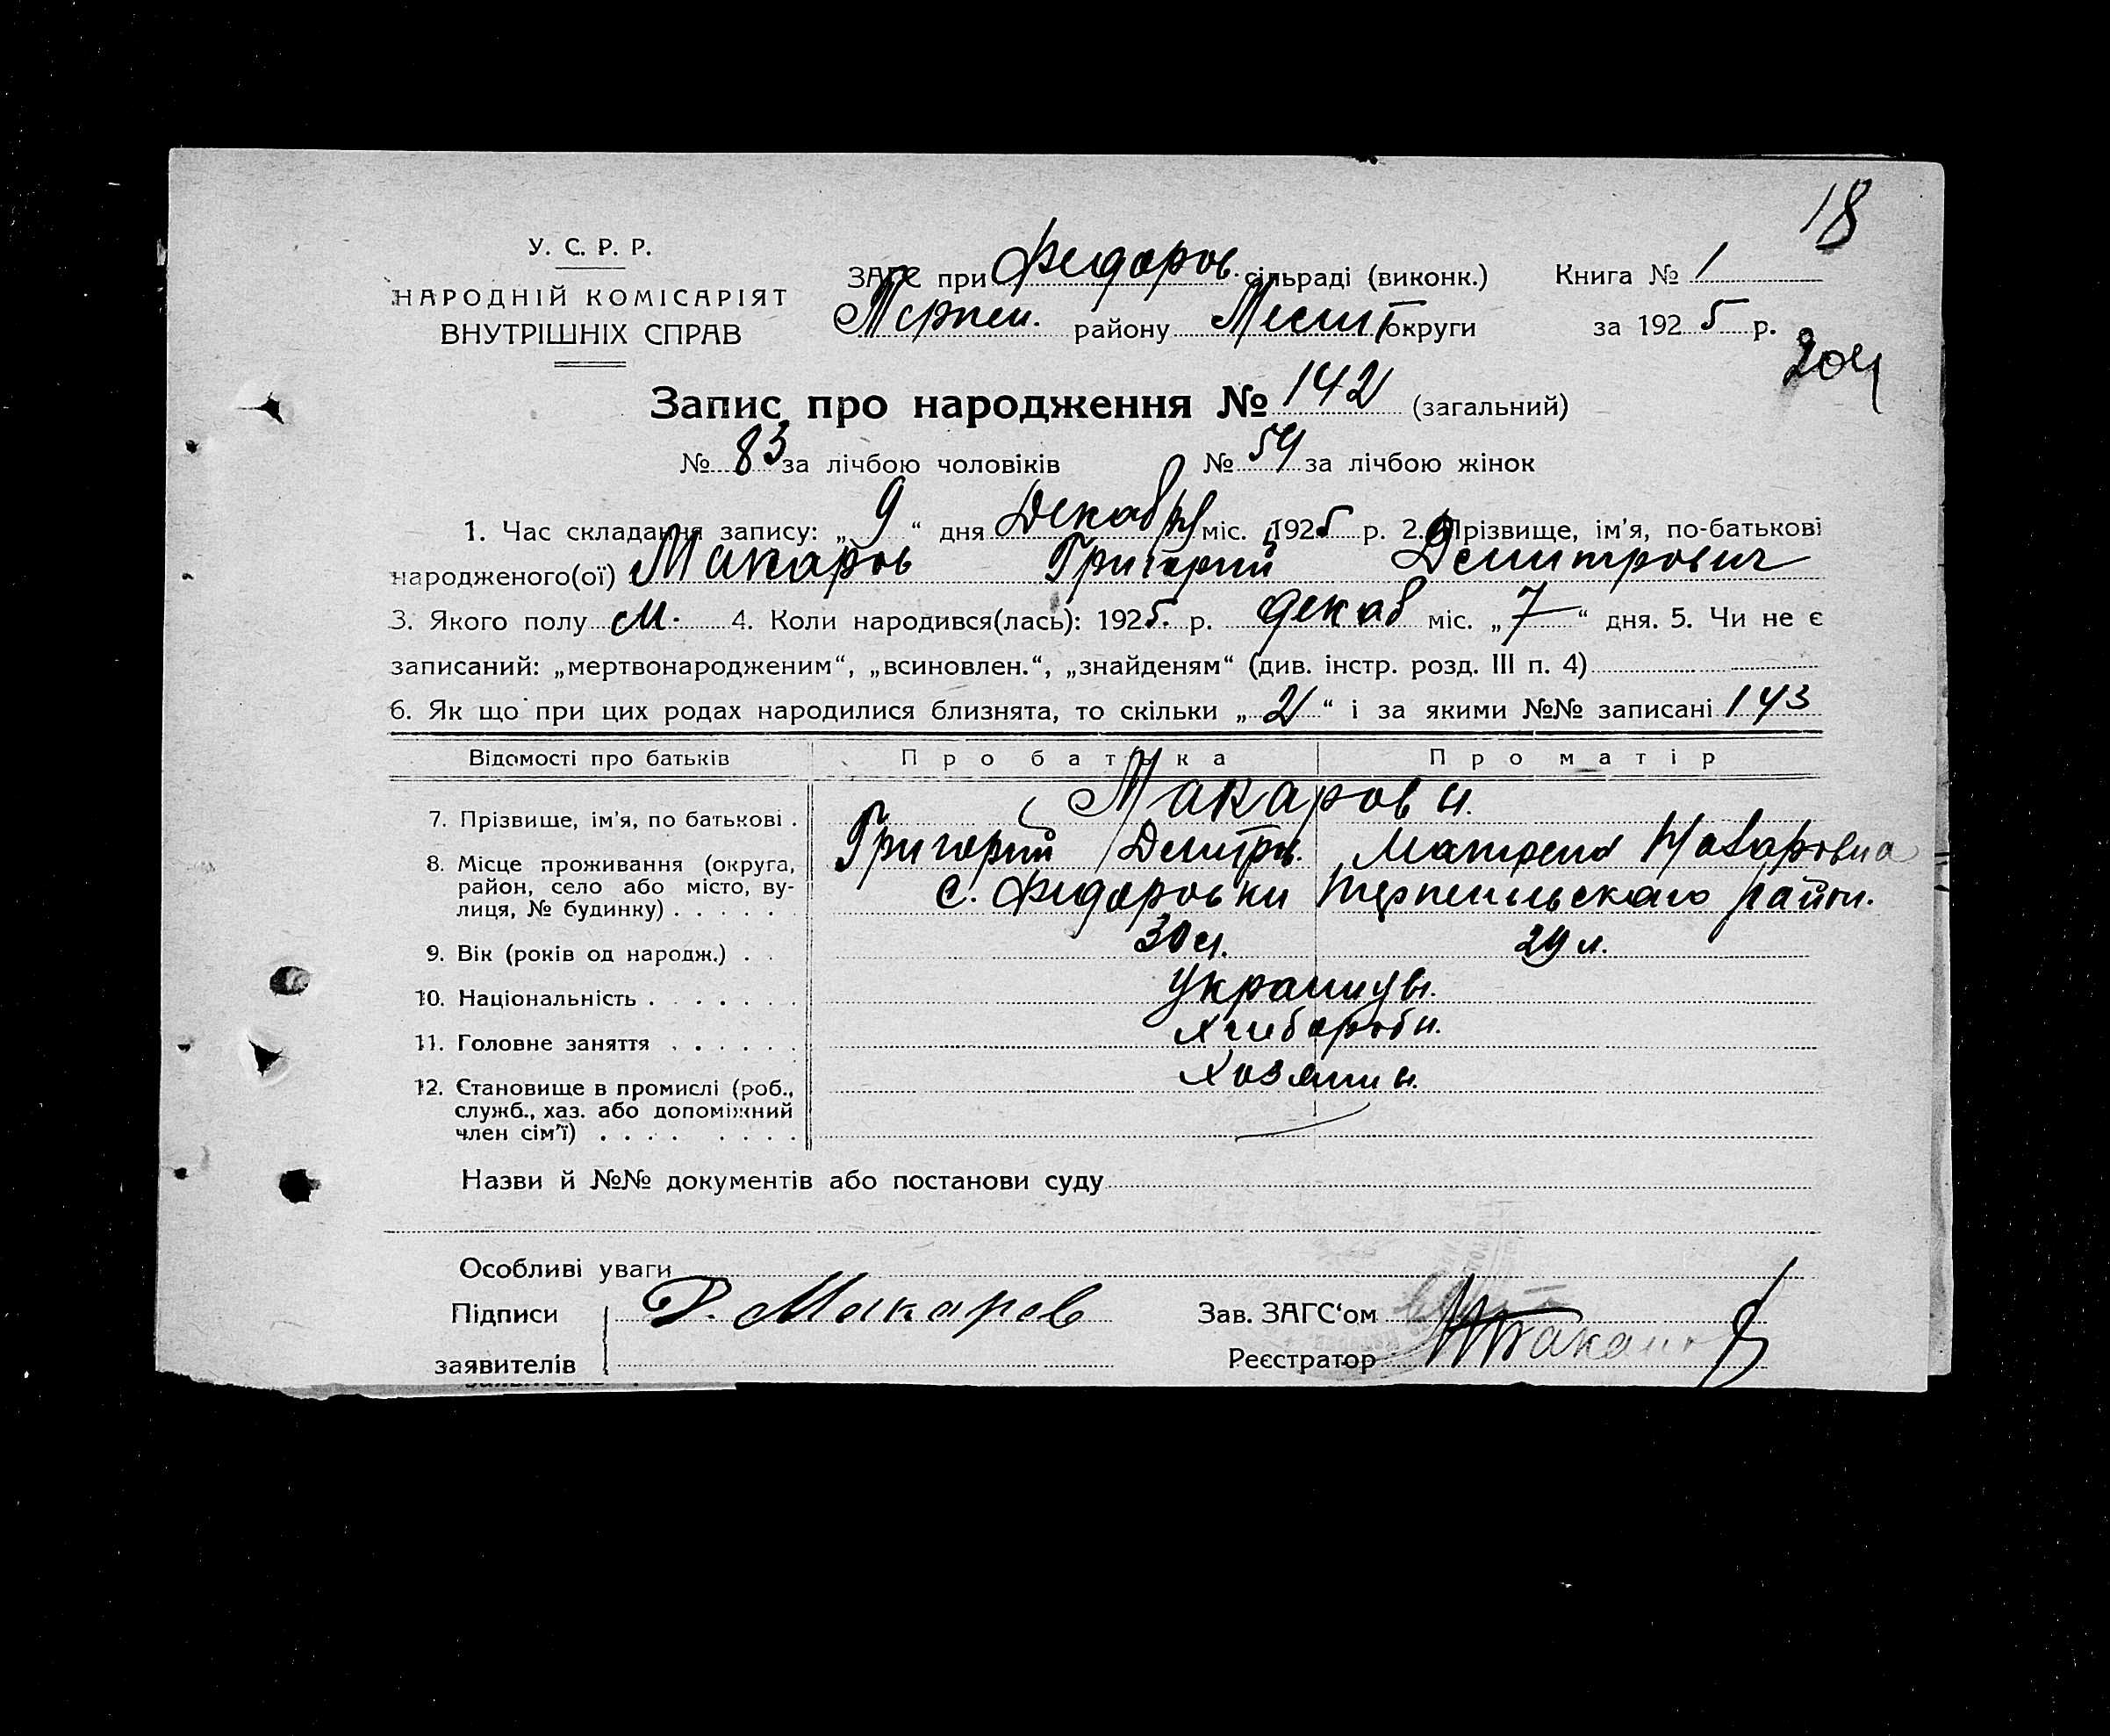 18
У. С. Р. Р.
НАРОДНІЙ КОМІСАРІЯТ
ВНУТРІШНІХ СПРАВ
ЗАГС при Федоров. сільраді (виконк.) Книга № 1
Терпен. району Мелит округи за 1925 р.
204
Запис про народження № 142 (загальний)
№ 83 за лічбою чоловіків № 59 за лічбою жінок
1. Час складання запису: „ 9 “ дня Декабря міс. 1925 р. 2. Прізвище, ім'я, по-батькові
народженого(ої) Макаров Григорий Демитрович
3. Якого полу м. 4. Коли народився(лась): 1925. р. декаб міс. „ 7 “ дня. 5. Чи не є
записаний: „мертвонародженим“, „всиновлен.“, „знайденям“ (див. інстр. розд. III п. 4)
6. Як що при цих родах народилися близнята, то скільки „ 2 “ і за якими №№ записані 143
Відомості про батьків Про батька Про матір
7. Прізвище, ім'я, по батькові . Макаровы.
Григорий Дмитрв. Матрена
8. Місце проживання (округа,
район, село або місто, ву-
лиця, № будинку) . . . . . с. Федоровки Терпеньскаго район.
9. Вік (років од народж.) . . 30 л. 29 л.
10. Національність . . . . . . . Украинцы.
11. Головне заняття . . . . . . хлебороби.
12. Становище в промислі (роб.,
служб., хаз. або допоміжний
член сім'ї) . . . . . . . . хозяини.
Назви й №№ документів або постанови суду
Особливі уваги
Підписи Г. Макаров Зав. ЗАГС‘ом
заявителів Реєстратор